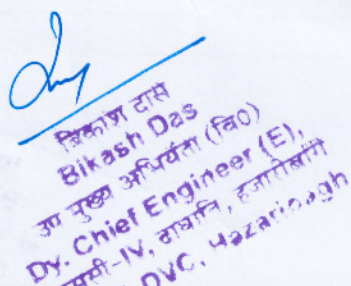 बिकाश दास
Bikash Das
उप मुख्य अभियंता (वि0)
Dy. Chief Engineer (E),
-IV, दाघानि, हजारीबाग
DVC, Hazaribagh